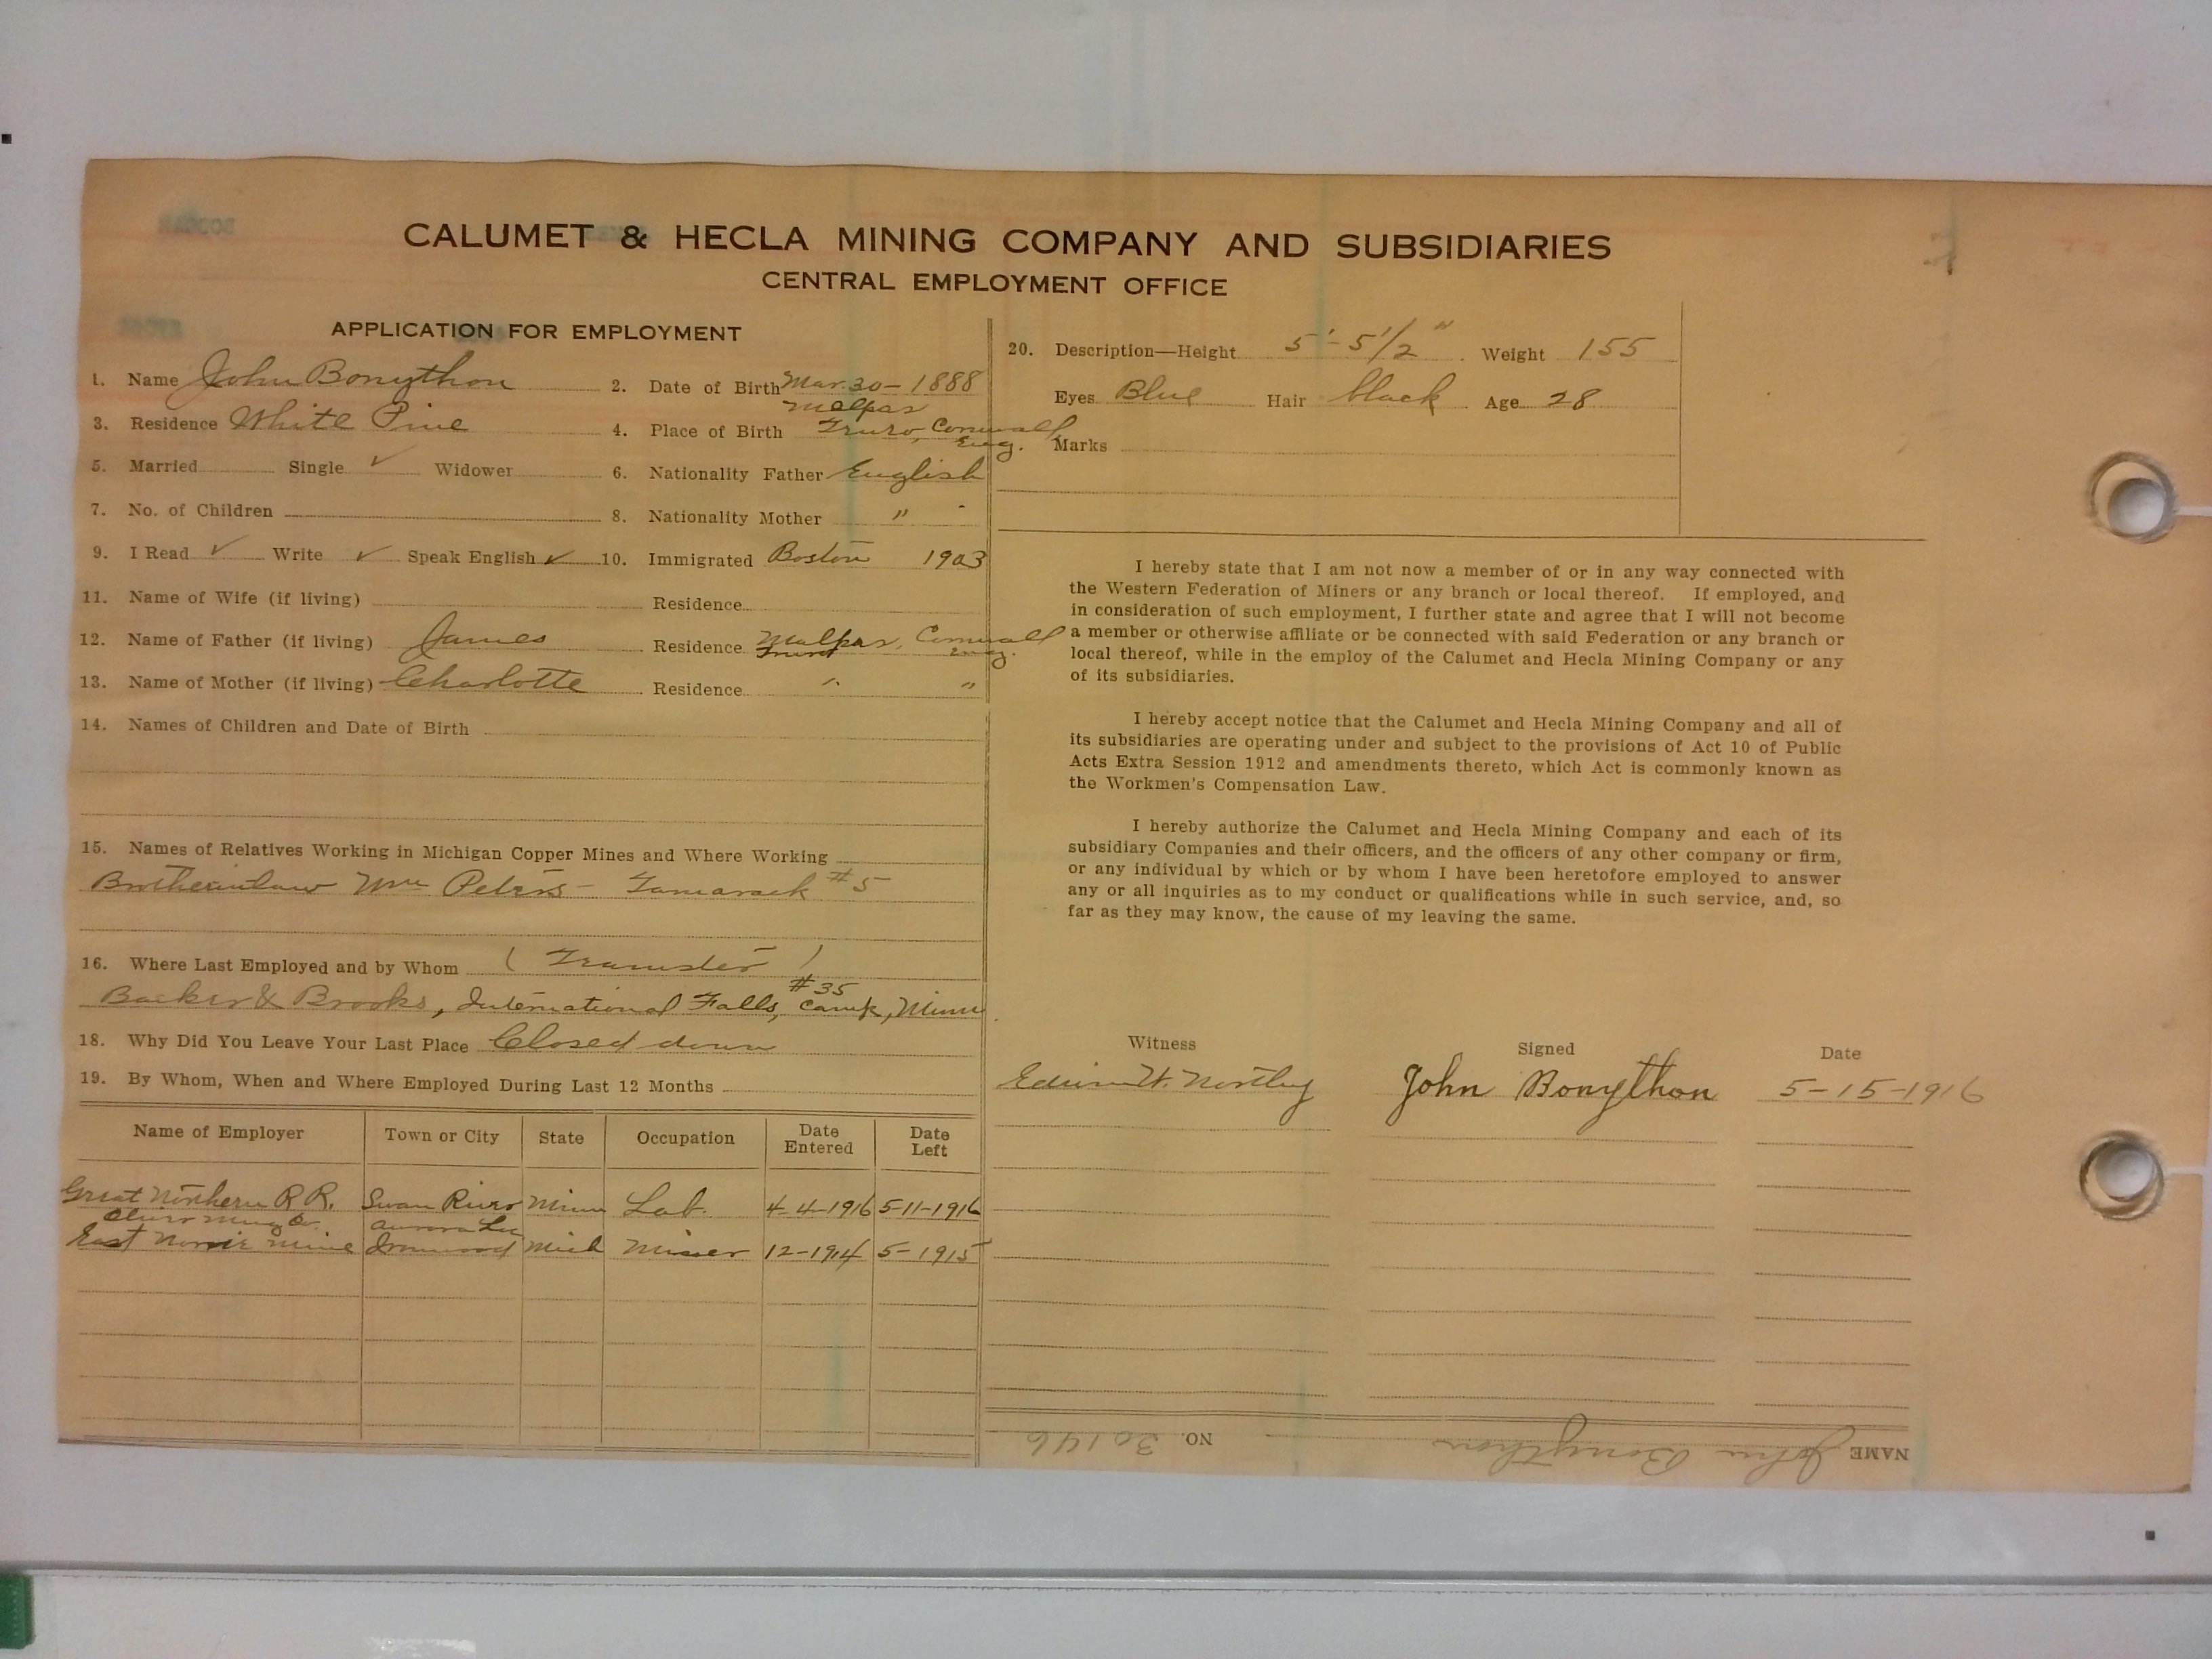 CALUMET & HECLA MINING COMPANY AND SUBSIDIARIES
CENTRAL EMPLOYMENT OFFICE
APPLICATION FOR EMPLOYMENT
1. Name John Bonython
2. Date of Birth Mar. 30 - 1888
3. Residence White Pine
4. Place of Birth Malpas Truro, Cornwall Eng.
5. Married Single ✓ Widower
6. Nationality Father English
7. No. of Children
8. Nationality Mother "
9. I Read ✓ Write ✓ Speak English ✓
10. Immigrated Boston 1903
11. Name of Wife (if living) Residence
12. Name of Father (if living) James Residence Malpas, Cornwall Eng.
13. Name of Mother (if living) Charlotte Residence " "
14. Names of Children and Date of Birth
15. Names of Relatives Working in Michigan Copper Mines and Where Working
Brotherinlaw Wm Peters - Tamarack #5
16. Where Last Employed and by Whom ( )
Backer & Brooks, International Falls, #35 Camp, Minn
18. Why Did You Leave Your Last Place Closed down
19. By Whom, When and Where Employed During Last 12 Months
Name of Employer Town or City State Occupation Date Entered Date Left
Great Northern R R. Swan River Minn Lab. 4-4-1916 5-11-1916
East Norrie Mine Ironwood Mich Miner 12-1914 5-1915
20. Description—Height 5'-5 1/2" Weight 155
Eyes Blue Hair black Age 28
Marks
I hereby state that I am not now a member of or in any way connected with
the Western Federation of Miners or any branch or local thereof. If employed, and
in consideration of such employment, I further state and agree that I will not become
a member or otherwise affiliate or be connected with said Federation or any branch or
local thereof, while in the employ of the Calumet and Hecla Mining Company or any
of its subsidiaries.
I hereby accept notice that the Calumet and Hecla Mining Company and all of
its subsidiaries are operating under and subject to the provisions of Act 10 of Public
Acts Extra Session 1912 and amendments thereto, which Act is commonly known as
the Workmen's Compensation Law.
I hereby authorize the Calumet and Hecla Mining Company and each of its
subsidiary Companies and their officers, and the officers of any other company or firm,
or any individual by which or by whom I have been heretofore employed to answer
any or all inquiries as to my conduct or qualifications while in such service, and, so
far as they may know, the cause of my leaving the same.
Witness Signed Date
Edwin W. John Bonython 5-15-1916
NAME John Bonython NO. 30146